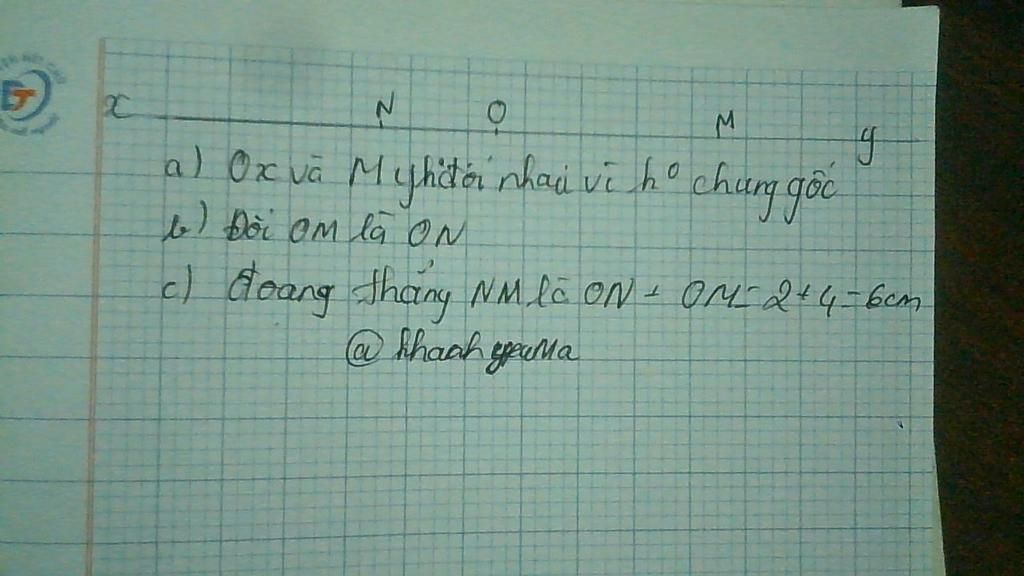 x N O M y
a) Ox và My kh đối nhau vì ko chung gốc
b) Đối OM là ON
c) đoạng thẳng NM là ON + OM = 2 + 4 = 6cm
@ khanh